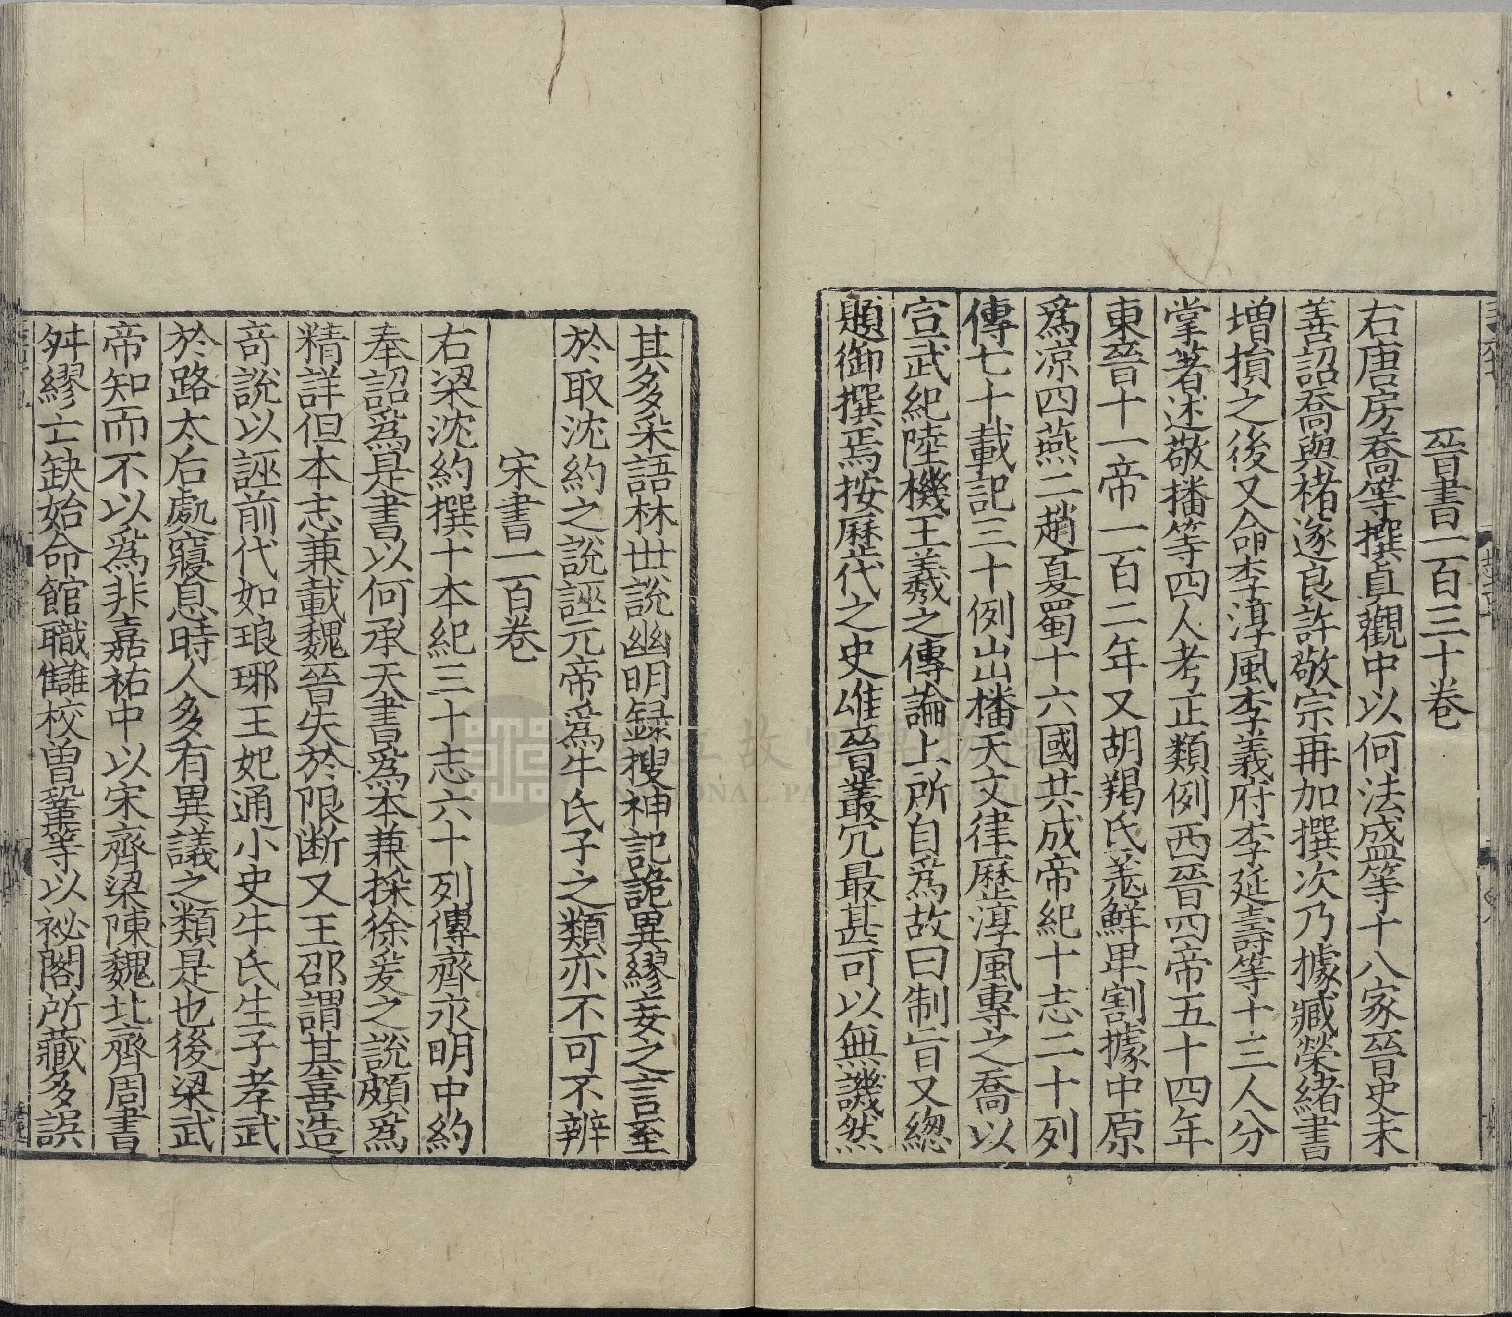 晉書一百三十卷
右唐房喬等撰貞觀中以何法盛等十八家晉史未
善詔喬與褚遂良許敬宗再加撰次乃據臧榮緒書
增損之後又命李淳風李義府李延壽等十三人分
掌著述敬播等四人考正類例西晉四帝五十四年
東晉十一帝一百二年又胡羯氐羌鮮卑割據中原
爲凉四燕二趙夏蜀十六國共成帝紀十志二十列
傳七十載記三十例出播天文律歷淳風專之喬以
宣武紀陸機王羲之傳論上所自爲故曰制旨又緫
題御撰焉按歷代之史唯晉叢冗最甚可以無譏然
其多采語林世說幽明録搜神記詭異繆妄之言至
於取沈約之說誣元帝爲牛氏子之類亦不可不辨
宋書一百卷
右梁沈約撰十本紀三十志六十列傳齊永明中約
奉詔爲是書以何承天書爲本兼採徐爰之說頗爲
精詳但本志兼載魏晉失於限断又王邵謂其喜造
竒說以誣前代如琅琊王妃通小史牛氏生子孝武
於路太后處寢息時人多有異議之類是也後梁武
帝知而不以爲非嘉祐中以宋齊梁陳魏北齊周書
舛繆亡缺始命館職讎校曾鞏等以祕閣所藏多誤
國立故宮博物院
NATIONAL PALACE MUSEUM